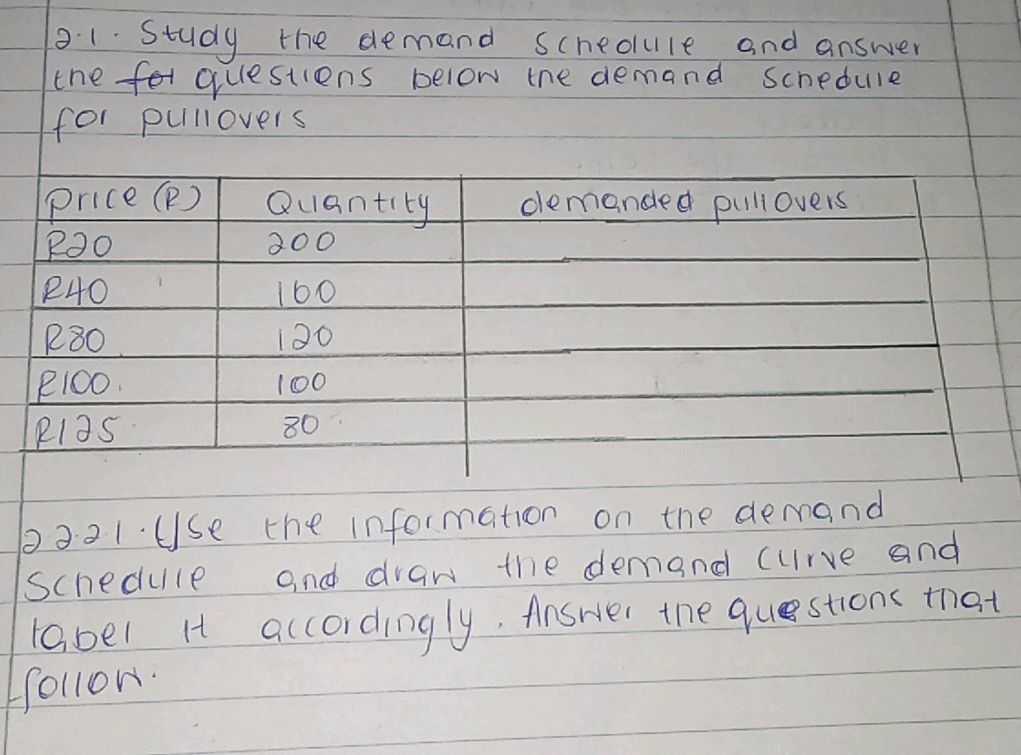 2.1. Study the demand schedule and answer
the for questions below the demand schedule
for pullovers
Price (R) Quantity demanded pullovers
R20 200
R40 160
R80 120
R100. 100
R125 80
2.2.2.1. Use the information on the demand
schedule and draw the demand curve and
label it accordingly. Answer the questions that
follow.